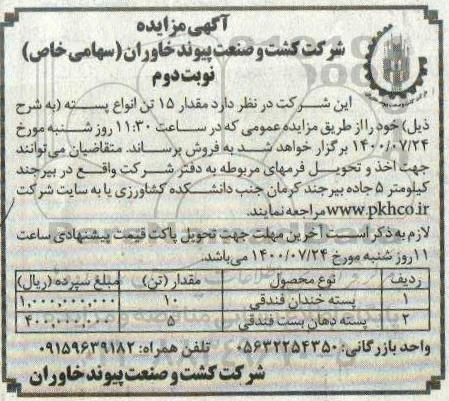 آگهی مزایده
شرکت کشت و صنعت پیوند خاوران (سهامی خاص)
نوبت دوم
این شرکت در نظر دارد مقدار ۱۵ تن انواع پسته (به شرح
ذیل) خود را از طریق مزایده عمومی که در ساعت ۱۱:۳۰ روز شنبه مورخ
۱۴۰۰/۰۷/۲۴ برگزار خواهد شد به فروش برساند. متقاضیان می‌توانند
جهت اخذ و تحویل فرمهای مربوطه به دفتر شرکت واقع در بیرجند
کیلومتر ۵ جاده بیرجند کرمان جنب دانشکده کشاورزی یا به سایت شرکت
www.pkhco.ir مراجعه نمایند.
لازم به ذکر است آخرین مهلت جهت تحویل پاکت قیمت پیشنهادی ساعت
۱۱ روز شنبه مورخ ۱۴۰۰/۰۷/۲۴ می‌باشد.
ردیف نوع محصول مقدار (تن) مبلغ سپرده (ریال)
۱ پسته خندان فندقی ۱۰ ۱,۰۰۰,۰۰۰,۰۰۰
۲ پسته دهان بست فندقی ۵ ۴۰۰,۰۰۰,۰۰۰
واحد بازرگانی: ۰۵۶۳۲۲۵۴۳۵۰ تلفن همراه: ۰۹۱۵۹۶۳۹۱۸۲
شرکت کشت و صنعت پیوند خاوران